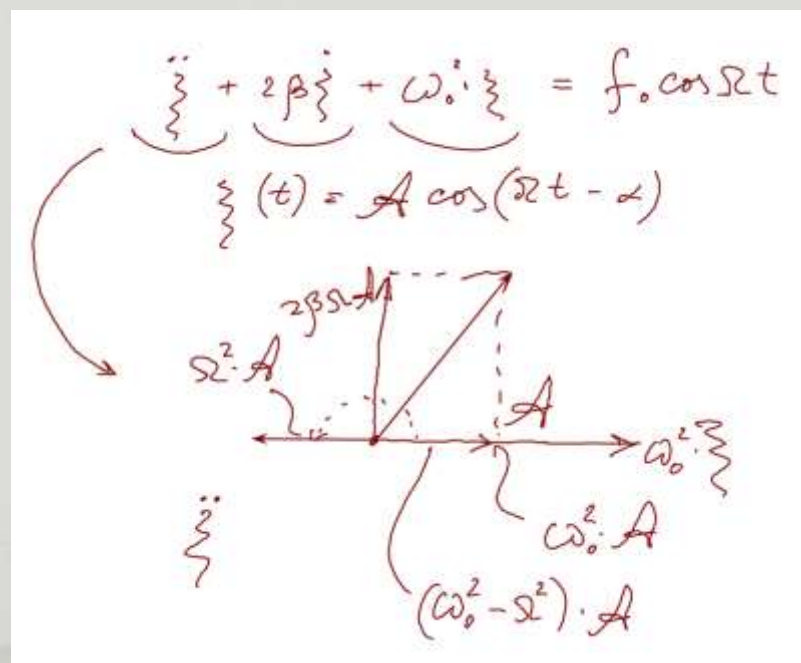 ξ̈ + 2βξ̇ + ω₀²·ξ = f₀ cosΩt
ξ(t) = A cos(Ωt - α)
2βΩA
Ω²·A
A
ω₀²·ξ
ξ̈
ω₀²·A
(ω₀² - Ω²)·A